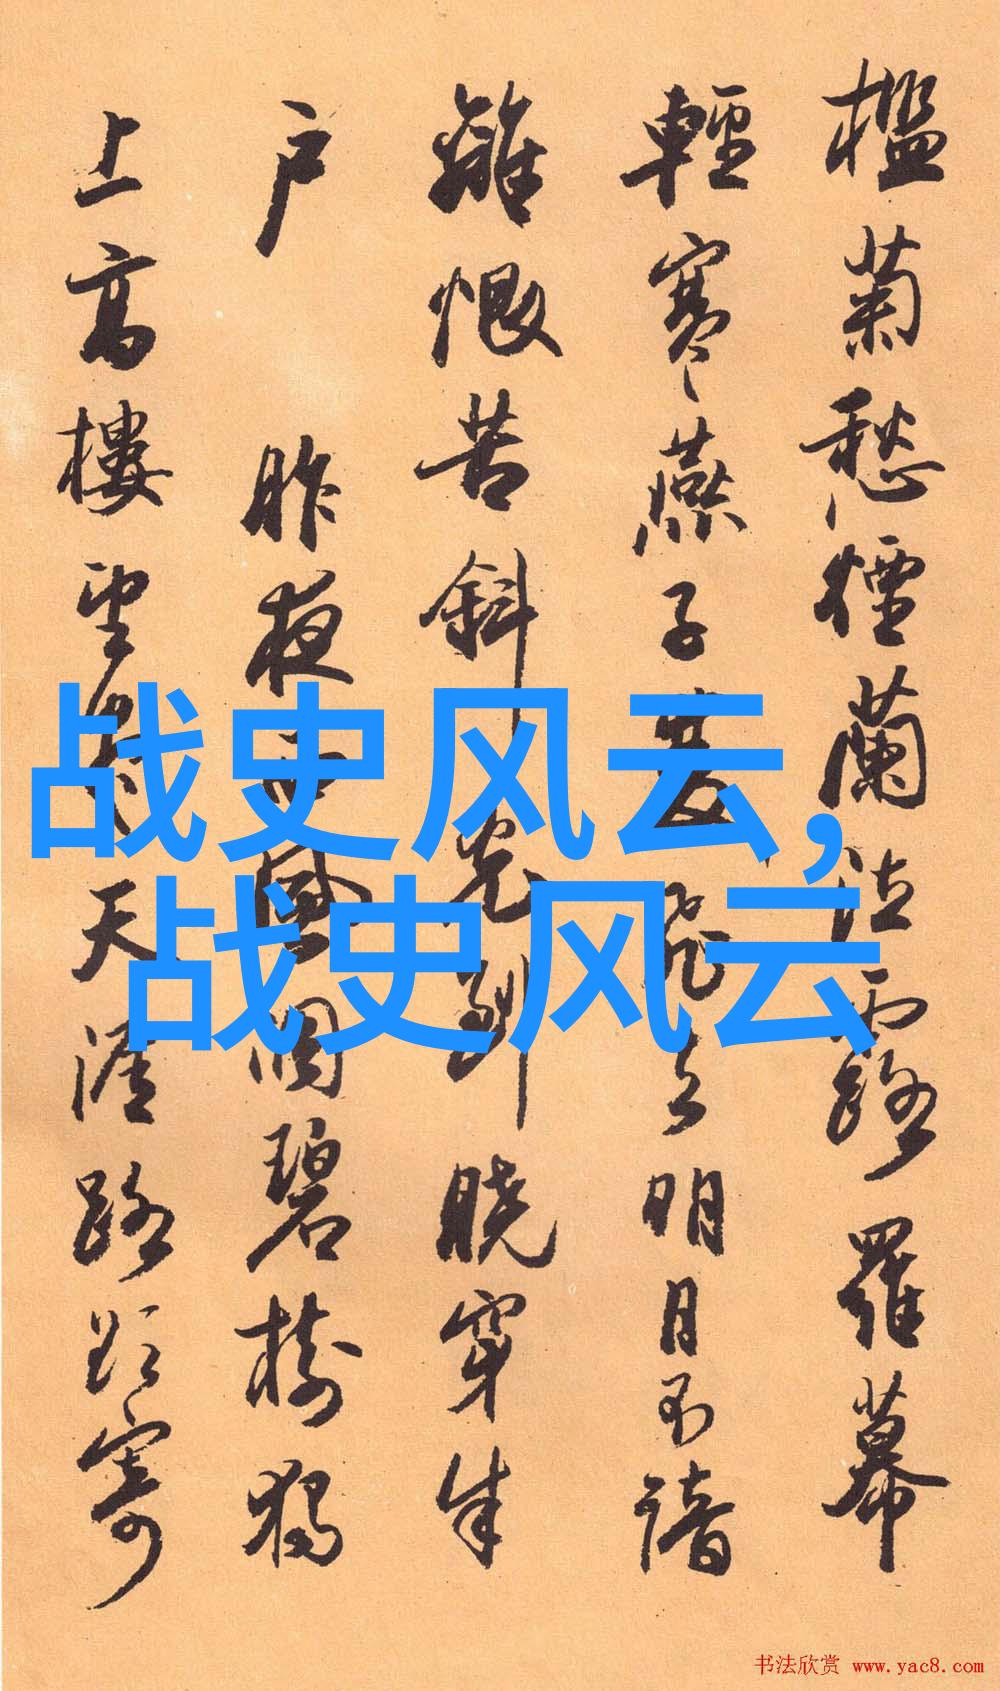 檻菊愁煙蘭泣露羅幕
輕寒燕子雙飛去明月不諳
離恨苦斜光到曉穿朱
户 昨夜西風凋碧樹獨
上高樓望盡天涯路欲寄
战史风云,
战史风云
书法欣赏 www.yac8.com